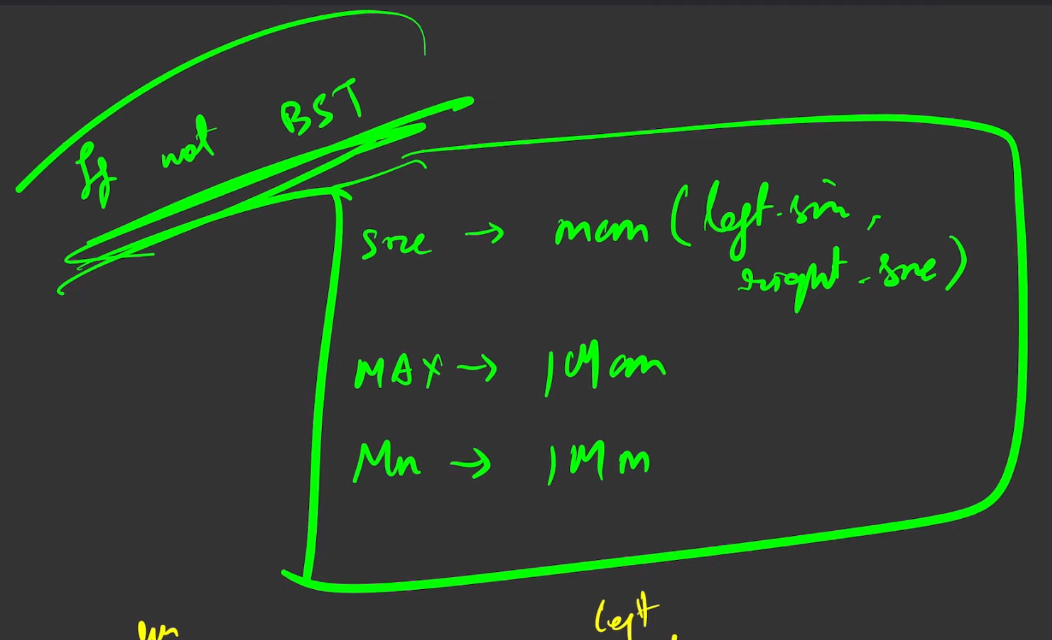 If not BST
size → max (left.size,
right.size)
MAX → IMax
Min → IMin
left